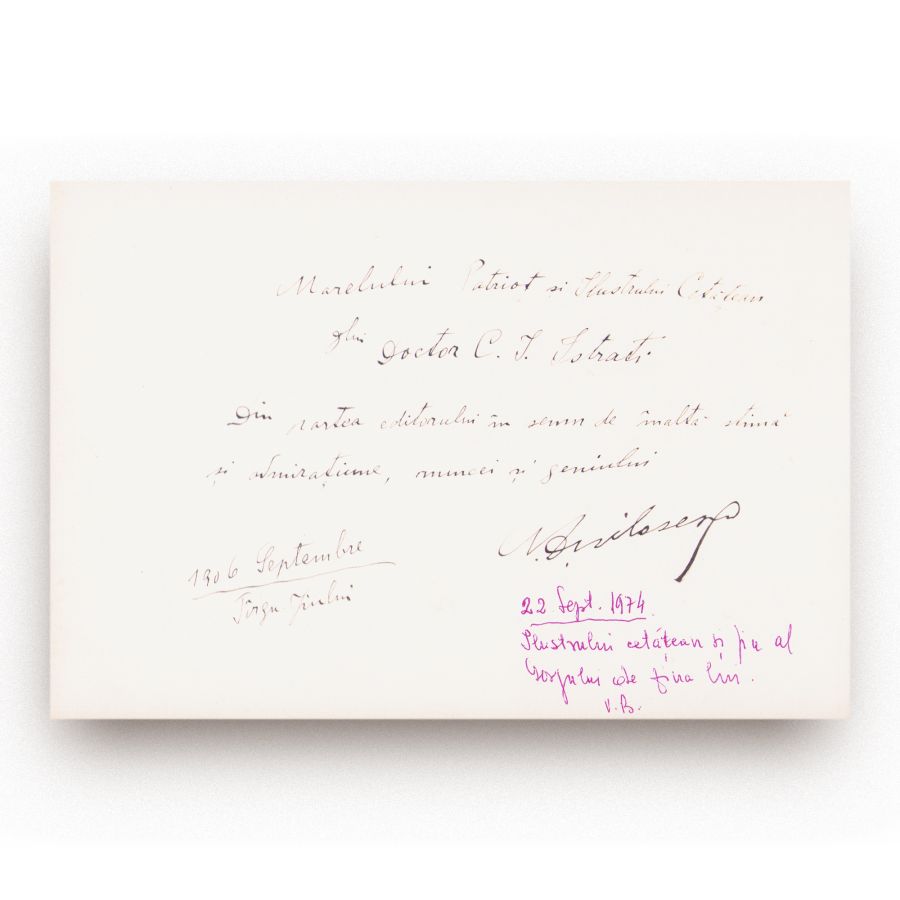 Marelului Patriot și Ilustrului Cetățean
Dlui Doctor C. I. Istrati
Din partea editorului în semn de înaltă stimă
și admirațiune, muncei și geniului
1906 Septembre
Tîrgu-Jiului
22 Sept. 1974
Ilustrului cetățean și fiu al
Gorjului de fina lui.
V.B.